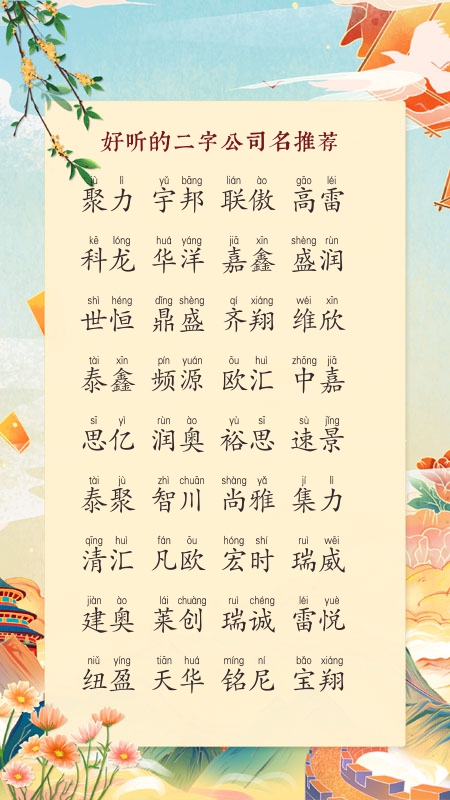 好听的二字公司名推荐
jù lì yǔ bāng lián ào gāo léi
聚力 宇邦 联傲 高雷
kē lóng huá yáng jiā xīn shèng rùn
科龙 华洋 嘉鑫 盛润
shì héng dǐng shèng qí xiáng wéi xīn
世恒 鼎盛 齐翔 维欣
tài xīn pín yuán ōu huì zhōng jiā
泰鑫 频源 欧汇 中嘉
sī yì rùn ào yù sī sù jǐng
思亿 润奥 裕思 速景
tài jù zhì chuān shàng yǎ jí lì
泰聚 智川 尚雅 集力
qīng huì fán ōu hóng shí ruì wēi
清汇 凡欧 宏时 瑞威
jiàn ào lái chuàng ruì chéng léi yuè
建奥 莱创 瑞诚 雷悦
niǔ yíng tiān huá míng ní bǎo xiáng
纽盈 天华 铭尼 宝翔